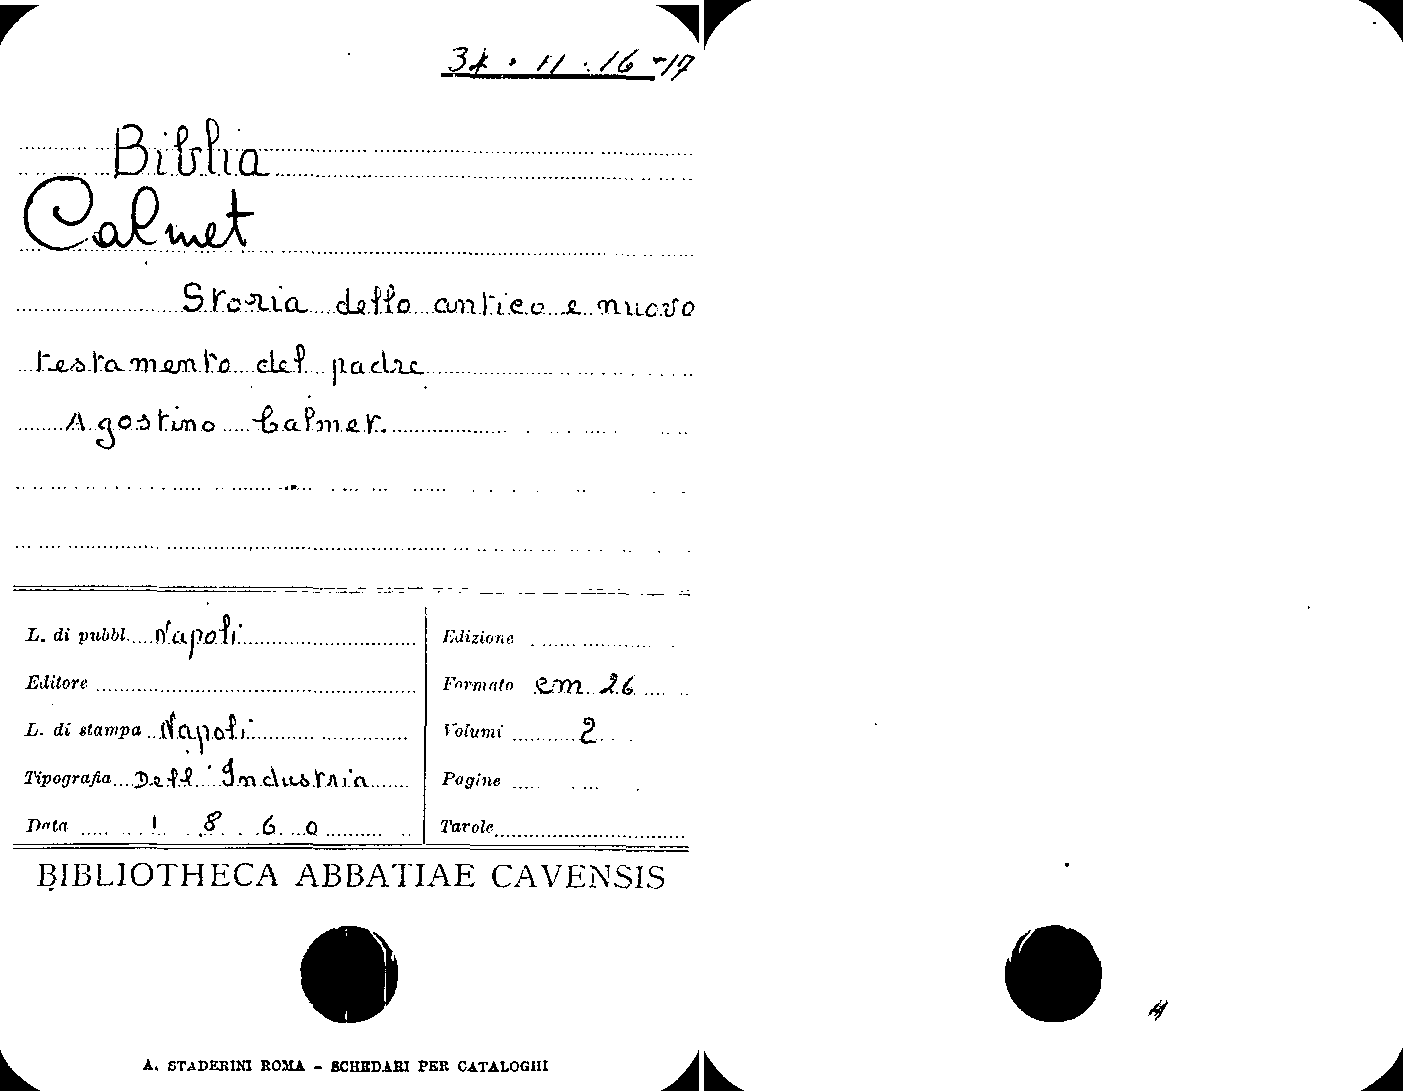 34 . 11 . 16-17
Biblia
Calmet
Storia dello antico e nuovo
testamento del padre
Agostino Calmet.
L. di pubbl. Napoli
Editore
L. di stampa Napoli
Tipografia Dell' Industria
Data 1 8 6 0
Edizione
Formato cm 26
Volumi 2
Pagine
Tavole
BIBLIOTHECA ABBATIAE CAVENSIS
A. STADERINI ROMA - SCHEDARI PER CATALOGHI